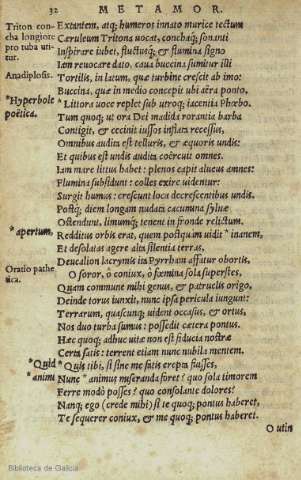 32 METAMOR.
Triton con-
cha longiore
pro tuba uti-
tur.
Anadiplosis.
*Hyperbole
poëtica.
*apertum,
Oratio pathe
tica.
*Quid
*animi
Extantem, atq; humeros innato murice tectum
Cæruleum Tritona uocat, conchaq; sonanti
Inspirare iubet, fluctusq; & flumina signo
Iam reuocare dato. caua buccina sumitur illi
Tortilis, in latum, quæ turbine crescit ab imo:
Buccina, quæ in medio concepit ubi aëra ponto,
*Littora uoce replet sub utroq; iacentia Phœbo.
Tum quoq; ut ora Dei madida rorantia barba
Contigit, & cecinit iussos inflata recessus,
Omnibus audita est telluris, & æquoris undis:
Et quibus est undis audita coërcuit omnes.
Iam mare littus habet: plenos capit alueus amnes:
Flumina subsidunt: colles exire uidentur:
Surgit humus: crescunt loca decrescentibus undis.
Postq; diem longam nudata cacumina syluæ
Ostendunt, limumq; tenent in fronde relictum.
Redditus orbis erat, quem postquàm uidit *inanem,
Et desolatas agere alta silentia terras,
Deucalion lacrymis ita Pyrrham affatur obortis,
O soror, ô coniux, ô fœmina sola superstes,
Quam commune mihi genus, & patruelis origo,
Deinde torus iunxit, nunc ipsa pericula iungunt:
Terrarum, quascunq; uident occasus, & ortus,
Nos duo turba sumus: possedit cætera pontus.
Hæc quoq; adhuc uitæ non est fiducia nostræ
Certa satis: terrent etiam nunc nubila mentem.
*Quis tibi, si sine me fatis erepta fuisses,
Nunc *animus miseranda foret? quo sola timorem
Ferre modò posses? quo consolante dolores?
Nanq; ego (crede mihi) si te quoq; pontus haberet,
Te sequerer coniux, & me quoq; pontus haberet.
O utin
Biblioteca de Galicia